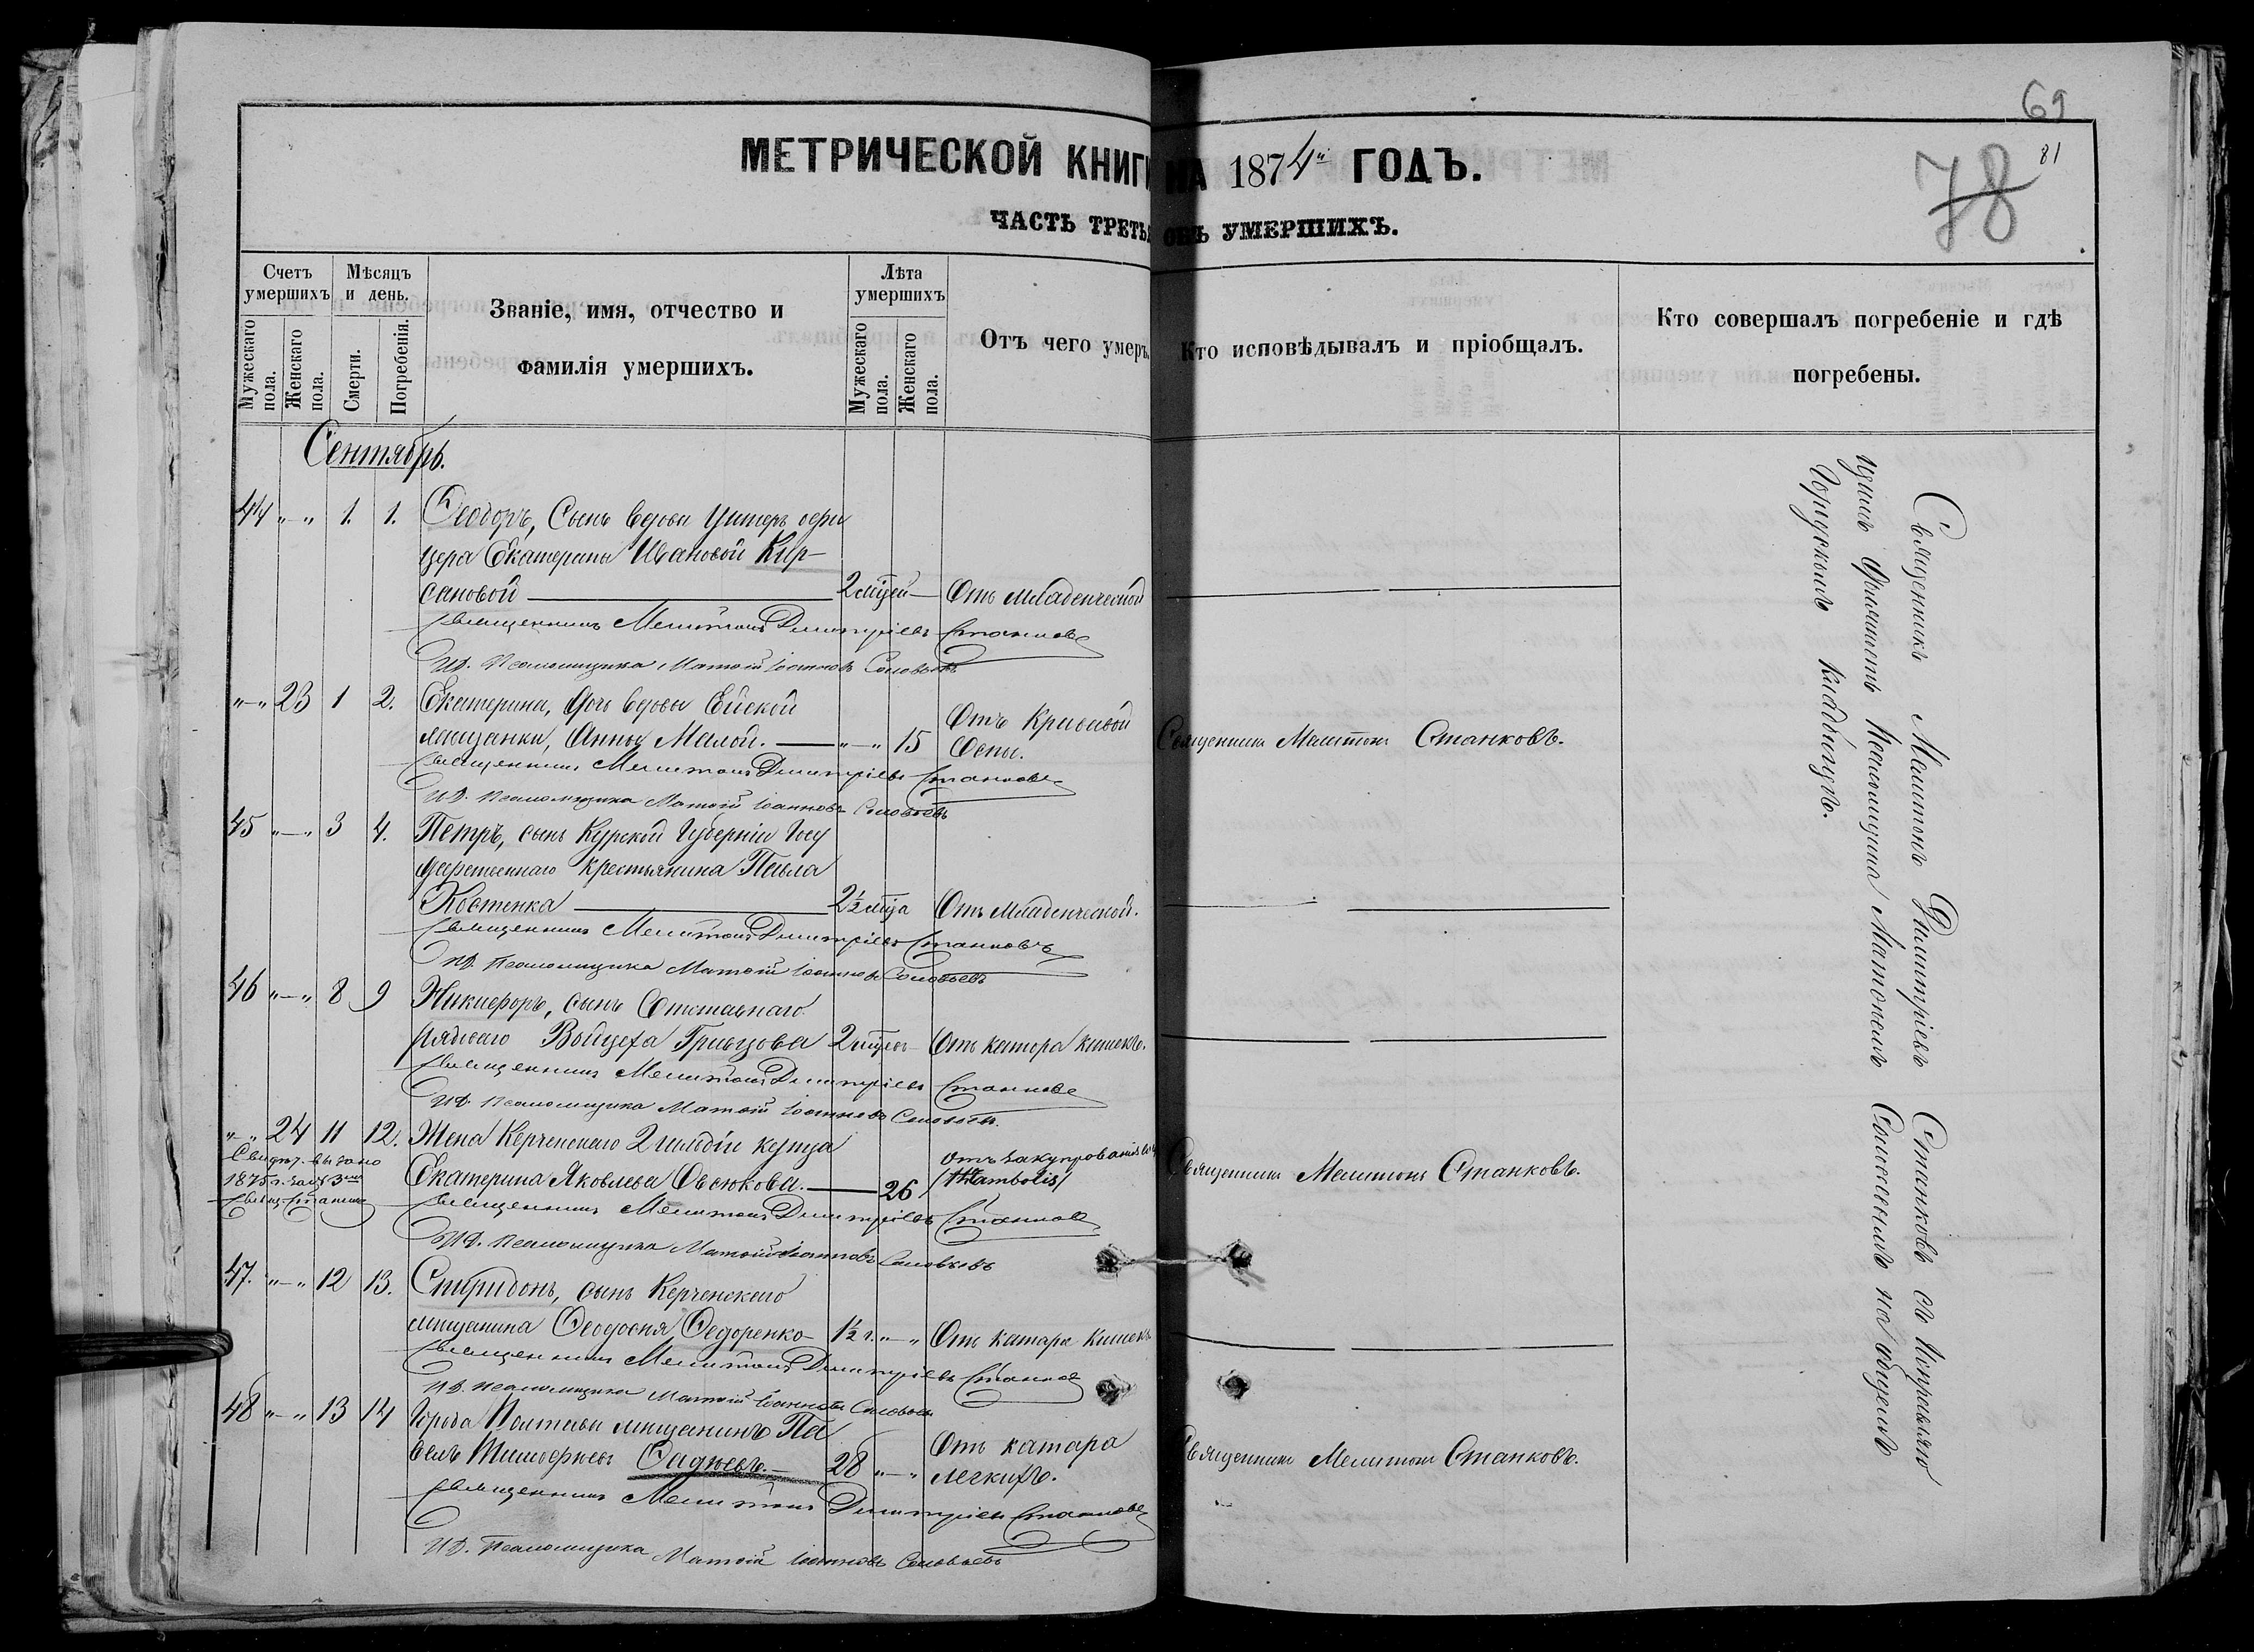 69
78
81
МЕТРИЧЕСКОЙ КНИГИ НА 1874й ГОДЪ.
ЧАСТЬ ТРЕТЬЯ ОБЪ УМЕРШИХЪ.
Счетъ умершихъ
Мужескаго пола.
Женскаго пола.
Мѣсяцъ и день.
Смерти.
Погребенія.
Званіе, имя, отчество и
фамилія умершихъ.
Лѣта умершихъ
Мужескаго пола.
Женскаго пола.
Отъ чего умеръ.
Кто исповѣдывалъ и пріобщалъ.
Кто совершалъ погребеніе и гдѣ
погребены.
Сентябрь.
44 „—„ 1. 1. Ѳеодоръ, Сынъ вдовы Унтеръ офи
цера Екатерины Ивановой Кир-
сановой — 2 мѣсц. — Отъ младенческой
Священникъ Мелитонъ Димитріевъ Станковъ
И.Д. Псаломщика Матѳій Іоанновъ Соловьевъ
„—„ 23 1 2. Екатерина, дочь вдовы Ейской
мѣщанки, Анны Малой. — „—„ 15 Отъ Кровавой Оспы. Священникъ Мелитонъ Станковъ.
Священникъ Мелитонъ Димитріевъ Станковъ
И.Д. псаломщика Матѳій Іоанновъ Соловьевъ
45 „—„ 3 4. Петръ, сынъ Курской Губерніи Госу
дарственнаго крестьянина Павла
Костенка — 2½ мѣсца Отъ Младенческой.
Священникъ Мелитонъ Димитріевъ Станковъ
И.Д. Псаломщика Матѳій Іоанновъ Соловьевъ
46 „—„ 8 9 Никифоръ, сынъ Отставнаго
рядоваго Войцеха Гривцова 2 мѣсц. Отъ катара кишекъ.
Священникъ Мелитонъ Димитріевъ Станковъ
И.Д. Псаломщика Матѳій Іоанновъ Соловьевъ
„—„ 24 11 12. Жена Керченскаго 2 гильдіи купца
Екатерина Яковлева Овсюкова. — 26 Отъ закупрованія Священникъ Мелитонъ Станковъ.
Свидѣт. выдано
1875 г. за №3мъ
Свящ. Станковъ
Священникъ Мелитонъ Димитріевъ Станковъ
И.Д. псаломщика Матѳій Іоанновъ Соловьевъ
47. „—„ 12 13. Спиридонъ, сынъ Керченскаго
мѣщанина Ѳеодосія Ѳедоренко — 1½ г. „—„ Отъ катара Кишекъ
Священникъ Мелитонъ Димитріевъ Станковъ
И.Д. псаломщика Матѳій Іоанновъ Соловьевъ
48 „—„ 13 14 Города Полтавы мѣщанинъ Па
велъ Тимофѣевъ — 28 „—„ Отъ катара легкихъ. Священникъ Мелитонъ Станковъ.
Священникъ Мелитонъ Димитріевъ Станковъ
И.Д. Псаломщика Матѳій Іоанновъ Соловьевъ
Священникъ Мелитонъ Димитріевъ Станковъ съ Исправляю
щимъ должность Псаломщика Матѳіемъ Соловьевымъ на общемъ
Городскомъ кладбищѣ.